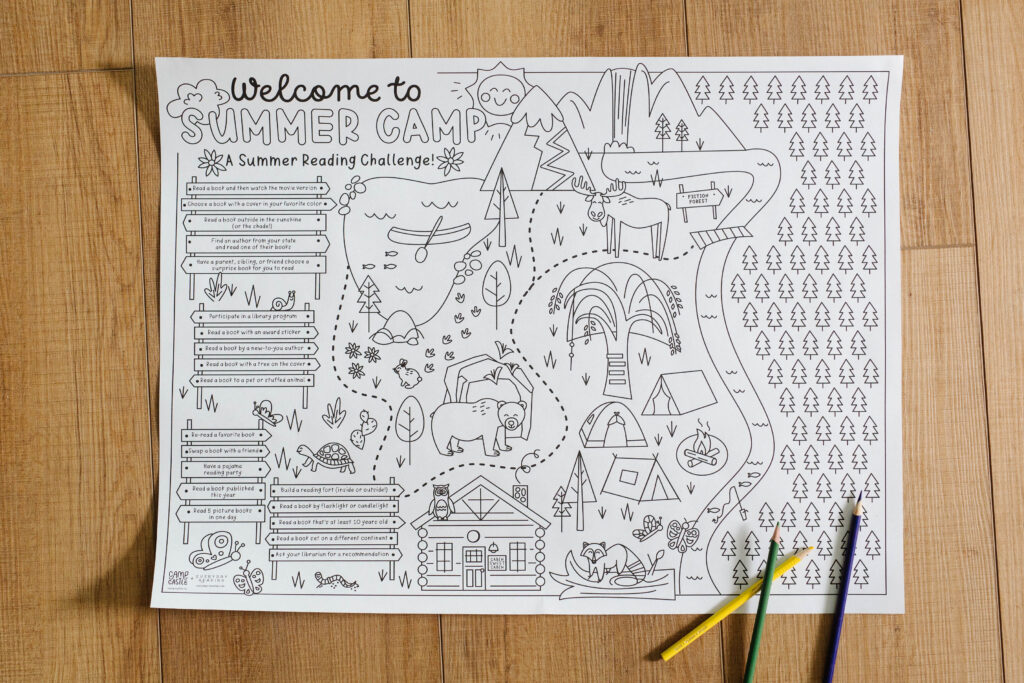 Welcome to
SUMMER CAMP
A Summer Reading Challenge!
Read a book and then watch the movie version
Choose a book with a cover in your favorite color
Read a book outside in the sunshine
(or the shade!)
Find an author from your state
and read one of their books
Have a parent, sibling, or friend choose a
surprise book for you to read
Participate in a library program
Read a book with an award sticker
Read a book by a new-to-you author
Read a book with a tree on the cover
Read a book to a pet or stuffed animal
Re-read a favorite book
Swap a book with a friend
Have a pajama
reading party
Read a book published
this year
Read 5 picture books
in one day
Build a reading fort (inside or outside!)
Read a book by flashlight or candlelight
Read a book that's at least 10 years old
Read a book set on a different continent
Ask your librarian for a recommendation
FICTION
FOREST
CABIN
SWEET
CABIN
CAMP
CASTLE
EVERYDAY
READING